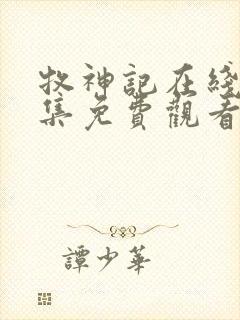 牧神記在綫
集免費觀看
譚少華